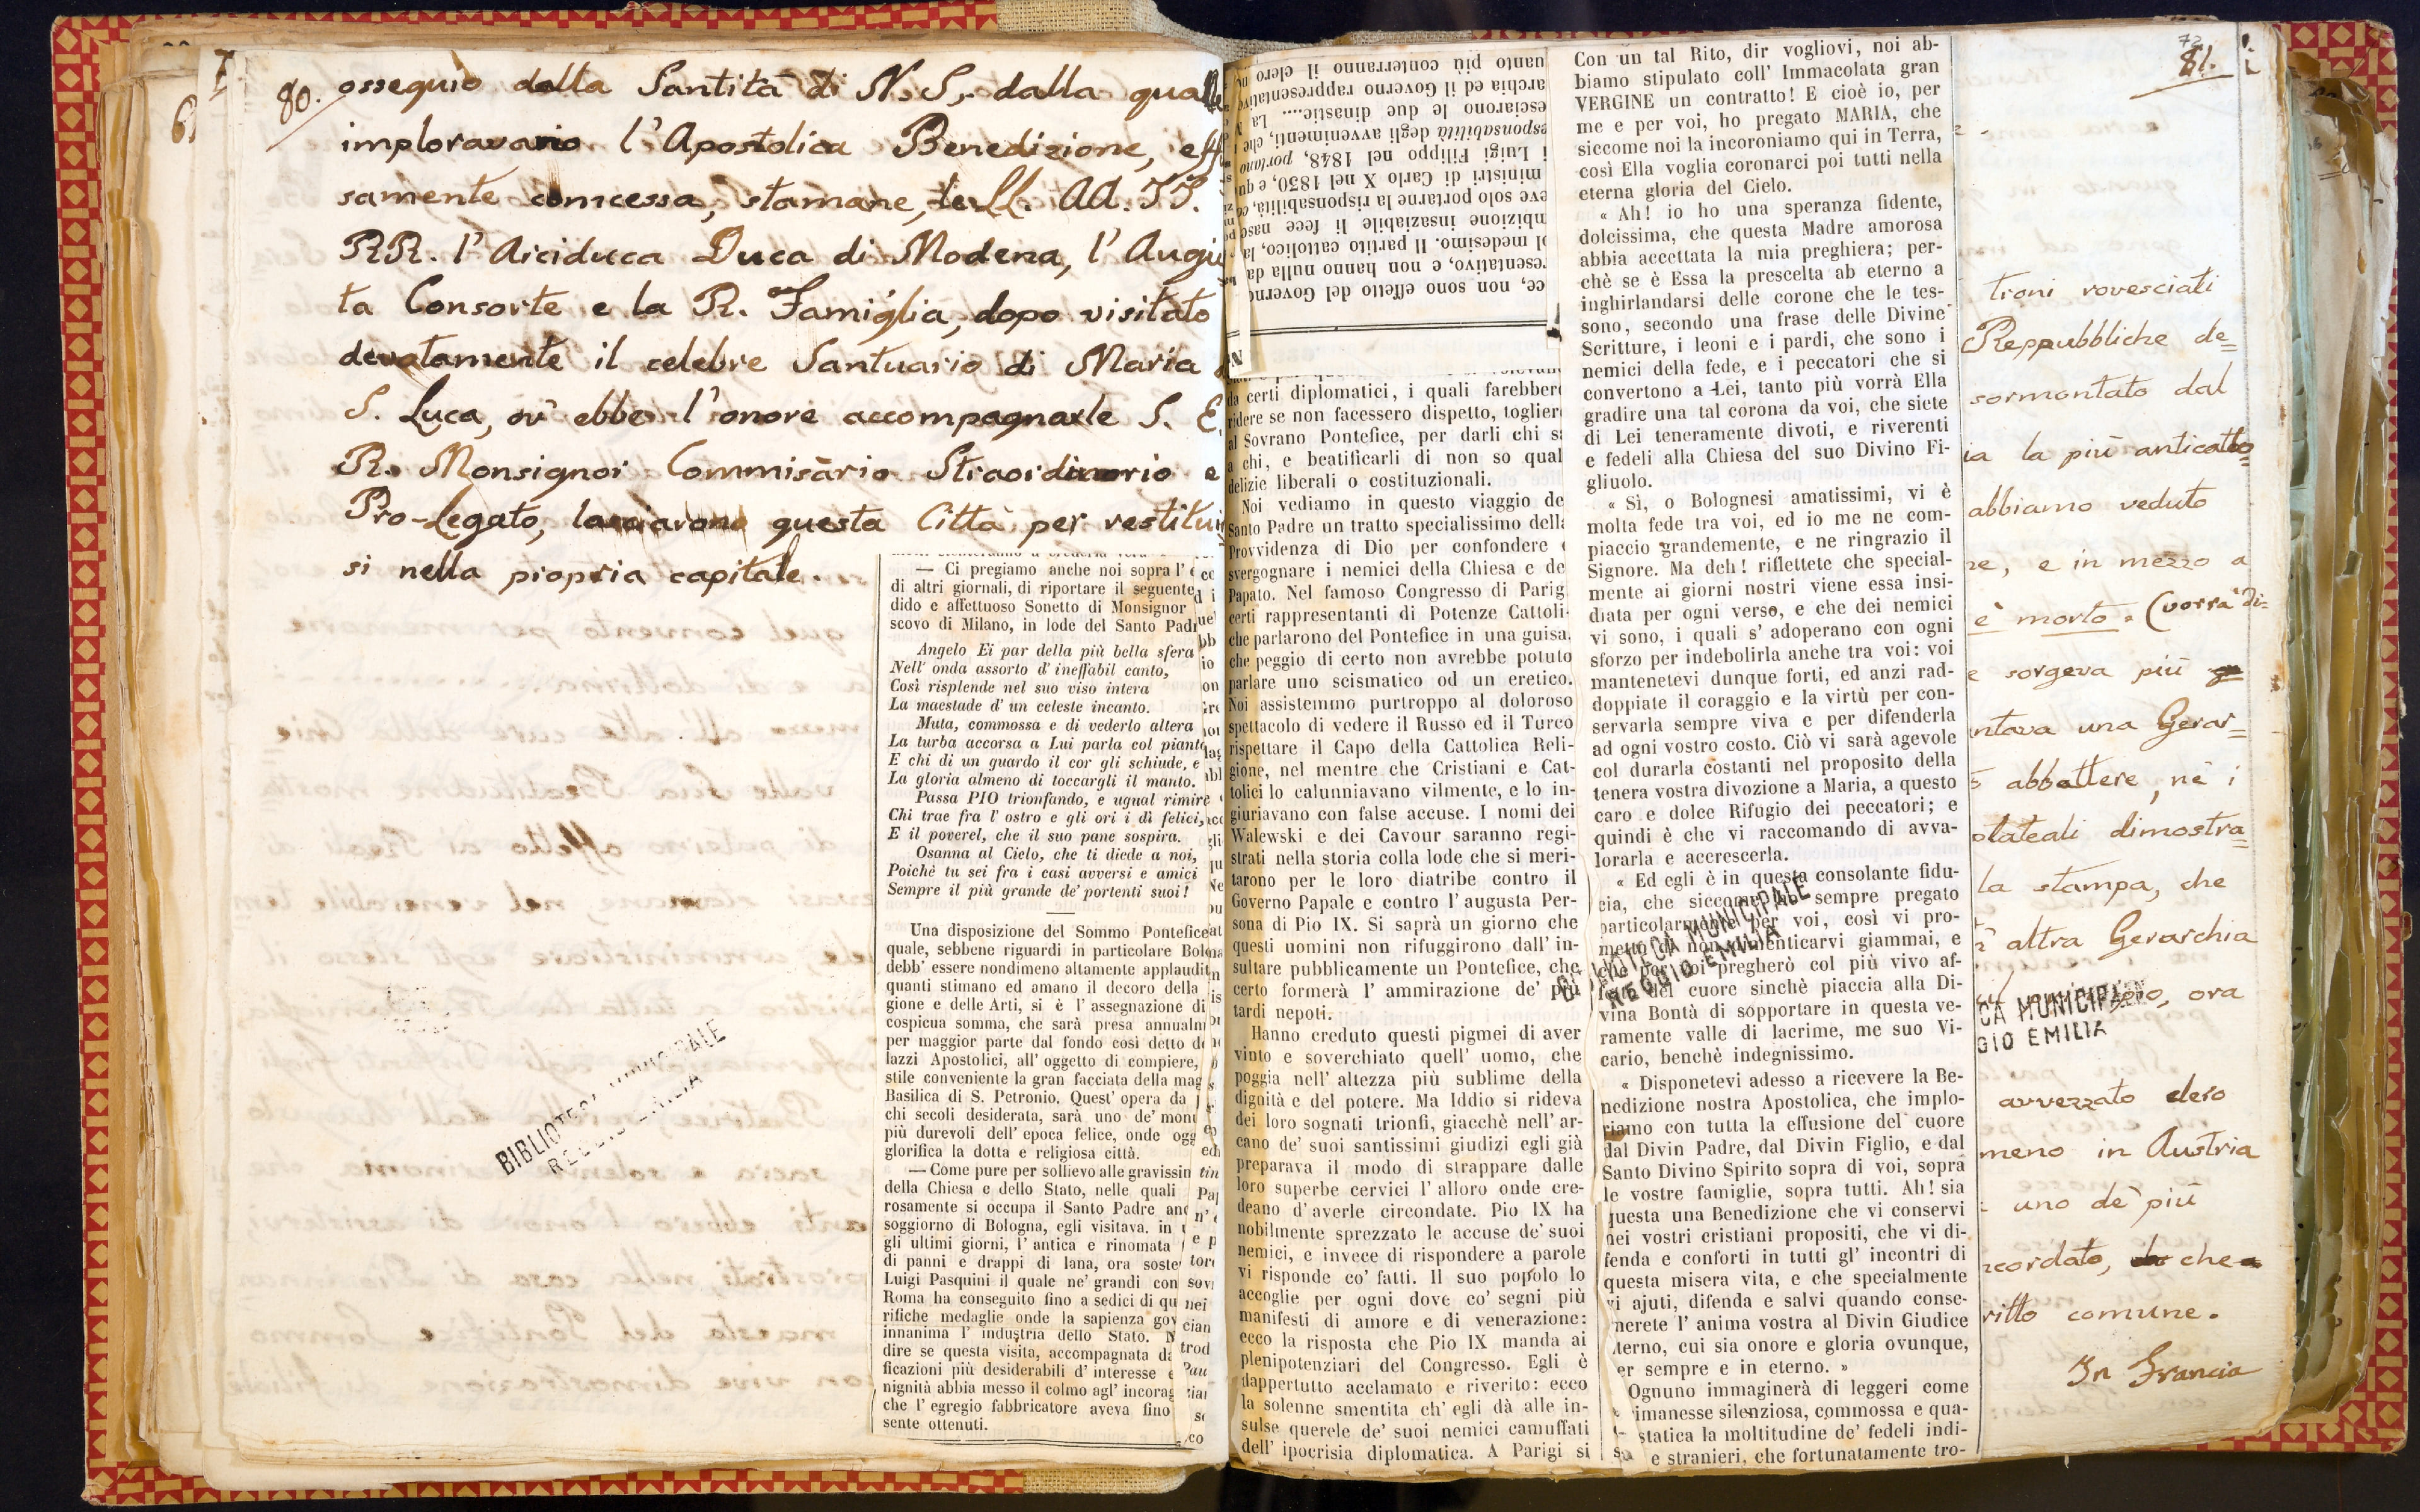 80.
osseguio della Santità di N. S., dalla quale
imploravano l'Apostolica Benedizione, eff
samente concessa, stamane, le LL. AA. II.
RR. l'Arciduca Duca di Modena, l'Augu
ta Consorte e la R. Famiglia, dopo visitato
devotamente il celebre Santuario di Maria
S. Luca, ov' ebbe l'onore accompagnarle S. E.
R. Monsignor Commisario Straordinario e
Pro-Legato, lasciarono questa Città per restitui
si nella propria capitale.
— Ci pregiamo anche noi sopra l' e
di altri giornali, di riportare il seguente
dido e affettuoso Sonetto di Monsignor
scovo di Milano, in lode del Santo Padr
Angelo Ei par della più bella sfera
Nell' onda assorto d' ineffabil canto,
Così risplende nel suo viso intera
La maestade d' un celeste incanto.
Muta, commossa e di vederlo altera
La turba accorsa a Lui parla col pianto
E chi di un guardo il cor gli schiude, e
La gloria almeno di toccargli il manto.
Passa PIO trionfando, e ugual rimire
Chi trae fra l' ostro e gli ori i dì felici,
E il poverel, che il suo pane sospira.
Osanna al Cielo, che ti diede a noi,
Poichè tu sei fra i casi avversi e amici
Sempre il più grande de' portenti suoi!
Una disposizione del Sommo Pontefice
quale, sebbene riguardi in particolare Bolo
debb' essere nondimeno altamente applaudit
quanti stimano ed amano il decoro della
gione e delle Arti, si è l' assegnazione di
cospicua somma, che sarà presa annualm
per maggior parte dal fondo così detto de
lazzi Apostolici, all' oggetto di compiere,
stile conveniente la gran facciata della mag
Basilica di S. Petronio. Quest' opera da
chi secoli desiderata, sarà uno de' monu
più durevoli dell' epoca felice, onde ogg
glorifica la dotta e religiosa città.
— Come pure per sollievo alle gravissin
della Chiesa e dello Stato, nelle quali
rosamente si occupa il Santo Padre anc
soggiorno di Bologna, egli visitava. in
gli ultimi giorni, l' antica e rinomata
di panni e drappi di lana, ora soste
Luigi Pasquini il quale ne' grandi con
Roma ha conseguito fino a sedici di qu
rifiche medaglie onde la sapienza gov
innanima l' industria dello Stato. N
dire se questa visita, accompagnata da
ficazioni più desiderabili d' interesse e
nignità abbia messo il colmo agl' incorag
che l' egregio fabbricatore aveva fino
sente ottenuti.
BIBLIOTECA MUNICIPALE
REGGIO EMILIA
ce, non sono effetto del Governo
resentativo, e non hanno nulla da
ol medesimo. Il partito cattolico, la
mbizione insaziabile li fece nasc
eve solo portarne la risponsabilità, co
ministri di Carlo X nel 1830, e qu
i Luigi Filippo nel 1848, portano
esponsabilità degli avvenimenti, che
esciarono le due dinastie.... La
archia ed il Governo rappresentativo
uanto più conterranno il clero ne
da certi diplomatici, i quali farebbero
ridere se non facessero dispetto, toglier
al Sovrano Pontefice, per darli chi sa
a chi, e beatificarli di non so qual
delizie liberali o costituzionali.
Noi vediamo in questo viaggio de
Santo Padre un tratto specialissimo dell
Provvidenza di Dio per confondere e
svergognare i nemici della Chiesa e de
Papato. Nel famoso Congresso di Parig
certi rappresentanti di Potenze Cattoli-
che parlarono del Pontefice in una guisa,
che peggio di certo non avrebbe potuto
parlare uno scismatico od un eretico.
Noi assistemmo purtroppo al doloroso
spettacolo di vedere il Russo ed il Turco
rispettare il Capo della Cattolica Reli-
gione, nel mentre che Cristiani e Cat-
tolici lo calunniavano vilmente, e lo in-
giuriavano con false accuse. I nomi dei
Walewski e dei Cavour saranno regi-
strati nella storia colla lode che si meri-
tarono per le loro diatribe contro il
Governo Papale e contro l' augusta Per-
sona di Pio IX. Si saprà un giorno che
questi uomini non rifuggirono dall' in-
sultare pubblicamente un Pontefice, che
certo formerà l' ammirazione de' più
tardi nepoti.
Hanno creduto questi pigmei di aver
vinto e soverchiato quell' uomo, che
poggia nell' altezza più sublime della
dignità e del potere. Ma Iddio si rideva
dei loro sognati trionfi, giacchè nell' ar-
cano de' suoi santissimi giudizi egli già
preparava il modo di strappare dalle
loro superbe cervici l' alloro onde cre-
deano d' averle circondate. Pio IX ha
nobilmente sprezzato le accuse de' suoi
nemici, e invece di rispondere a parole
vi risponde co' fatti. Il suo popolo lo
accoglie per ogni dove co' segni più
manifesti di amore e di venerazione:
ecco la risposta che Pio IX manda ai
plenipotenziari del Congresso. Egli è
dappertutto acclamato e riverito: ecco
la solenne smentita ch' egli dà alle in-
sulse querele de' suoi nemici camuffati
dell' ipocrisia diplomatica. A Parigi si
Con un tal Rito, dir vogliovi, noi ab-
biamo stipulato coll' Immacolata gran
VERGINE un contratto! E cioè io, per
me e per voi, ho pregato MARIA, che
siccome noi la incoroniamo qui in Terra,
così Ella voglia coronarci poi tutti nella
eterna gloria del Cielo.
« Ah! io ho una speranza fidente,
dolcissima, che questa Madre amorosa
abbia accettata la mia preghiera; per-
chè se è Essa la prescelta ab eterno a
inghirlandarsi delle corone che le tes-
sono, secondo una frase delle Divine
Scritture, i leoni e i pardi, che sono i
nemici della fede, e i peccatori che si
convertono a Lei, tanto più vorrà Ella
gradire una tal corona da voi, che siete
di Lei teneramente divoti, e riverenti
e fedeli alla Chiesa del suo Divino Fi-
gliuolo.
« Sì, o Bolognesi amatissimi, vi è
molta fede tra voi, ed io me ne com-
piaccio grandemente, e ne ringrazio il
Signore. Ma deh! riflettete che special-
mente ai giorni nostri viene essa insi-
diata per ogni verso, e che dei nemici
vi sono, i quali s' adoperano con ogni
sforzo per indebolirla anche tra voi: voi
mantenetevi dunque forti, ed anzi rad-
doppiate il coraggio e la virtù per con-
servarla sempre viva e per difenderla
ad ogni vostro costo. Ciò vi sarà agevole
col durarla costanti nel proposito della
tenera vostra divozione a Maria, a questo
caro e dolce Rifugio dei peccatori; e
quindi è che vi raccomando di avva-
lorarla e accrescerla.
« Ed egli è in questa consolante fidu-
cia, che siccome ho sempre pregato
particolarmente per voi, così vi pro-
metto di non dimenticarvi giammai, e
che per voi pregherò col più vivo af-
fetto del cuore sinchè piaccia alla Di-
vina Bontà di sopportare in questa ve-
ramente valle di lacrime, me suo Vi-
cario, benchè indegnissimo.
« Disponetevi adesso a ricevere la Be-
nedizione nostra Apostolica, che implo-
riamo con tutta la effusione del cuore
dal Divin Padre, dal Divin Figlio, e dal
Santo Divino Spirito sopra di voi, sopra
le vostre famiglie, sopra tutti. Ah! sia
questa una Benedizione che vi conservi
nei vostri cristiani propositi, che vi di-
fenda e conforti in tutti gl' incontri di
questa misera vita, e che specialmente
vi ajuti, difenda e salvi quando conse-
nerete l' anima vostra al Divin Giudice
terno, cui sia onore e gloria ovunque,
er sempre e in eterno. »
Ognuno immaginerà di leggeri come
imanesse silenziosa, commossa e qua-
statica la moltitudine de' fedeli indi-
e stranieri, che fortunatamente tro-
BIBLIOTECA MUNICIPALE
REGGIO EMILIA
72
81.
troni rovesciati
Reppubbliche de=
sormontato dal
ia la più anticatto=
abbiamo veduto
re, e in mezzo a
è morto. (vorrà di=
e sorgeva più
ntava una Gerar=
abbattere, nè i
olateali dimostra=
la stampa, che
altra Gerarchia
ora
CA MUNICIPALE
GIO EMILIA
avvezzato clero
meno in Austria
uno de' più
cordato, che
ritto comune.
In Francia